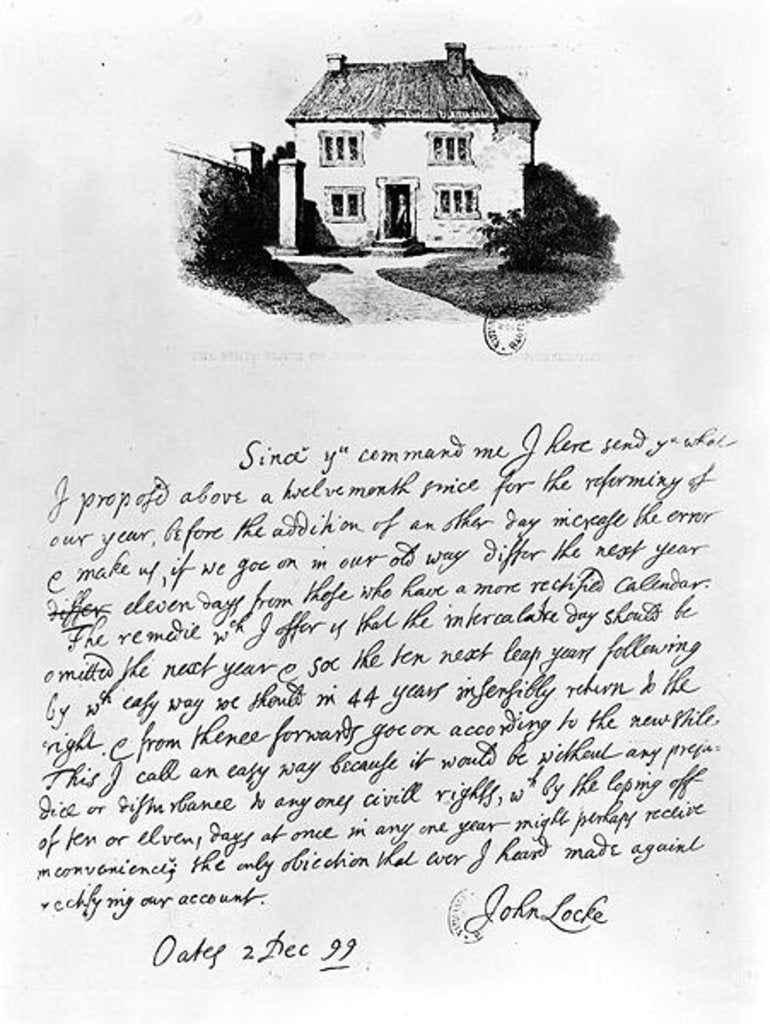 Since yu command me I here send yu what
I proposd above a twelvemonth since for the reforming of
our year, before the addition of an other day increase the error
& make us, if we goe on in our old way differ the next year
differ eleven days from those who have a more rectified Calendar.
The remedie wch I offer is that the intercalare day should be
omitted the next year & soe the ten next leap years following
by wch easy way we should in 44 years insensibly return to the
right. & from thence forwards goe on according to the new stile.
This I call an easy way because it would be without any preju-
dice or disturbance to any ones civill rights, wch by the loping off
of ten or eleven, days at once in any one year might perhaps receive
inconvenience, the only obiection that ever I heard made against
rectifying our account.
John Locke
Oates 2 Dec 99